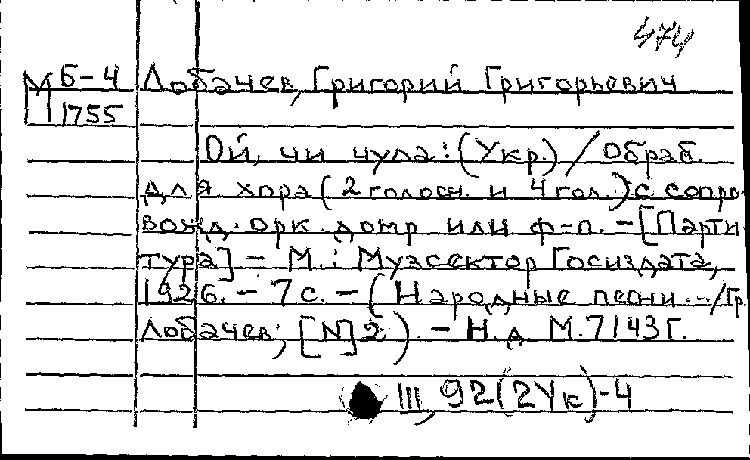 474
М 6-4 Лобачев, Григорий Григорьевич
1755
Ой, чи чула: (Укр.) / Обраб.
для хора (2 голосн. и 4 гол.) с сопро-
вожд. орк. домр или ф-п. - [Парти-
тура] - М.: Музсектор Госиздата,
1926. - 7 с. - (Народные песни .-/Гр.
Лобачев; [N] 2) - Н.д М.7143 Г.
III, 92(2Ук)-4